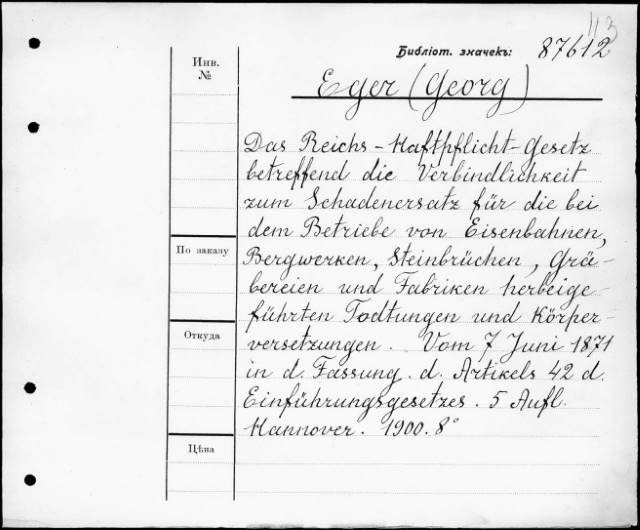 113
Библіот. значекъ: 87612
Инв. №
Eger (Georg)
Das Reichs-Haftpflicht-Gesetz
betreffend die Verbindlichkeit
zum Schadenersatz für die bei
dem Betriebe von Eisenbahnen,
Bergwerken, Steinbrüchen, Grä-
bereien und Fabriken herbeige-
führten Todtungen und Körper-
versetzungen. Vom 7 Juni 1871
in d. Fassung. d. Artikels 42 d.
Einführungsgesetzes. 5 Aufl.
Hannover. 1900. 8°
По заказу
Откуда
Цѣна